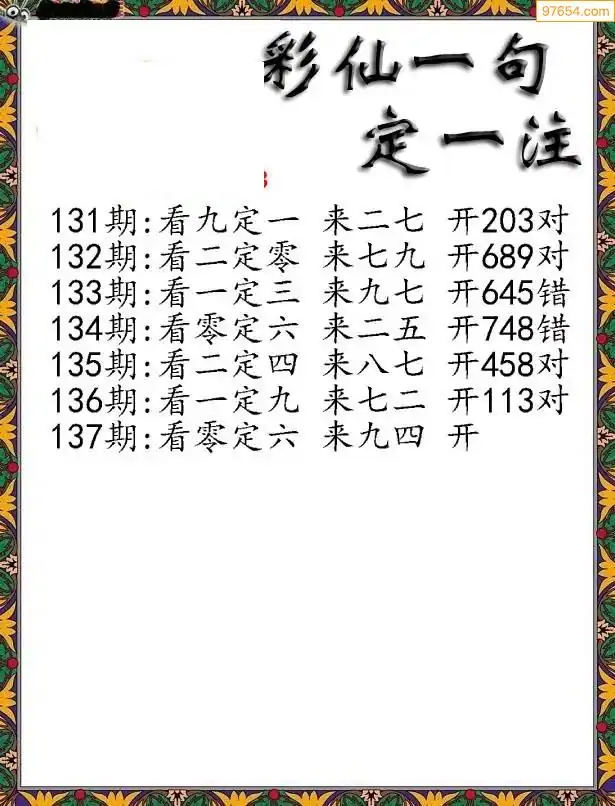 97654.com
彩仙一句
定一注
131期:看九定一 来二七 开203对
132期:看二定零 来七九 开689对
133期:看一定三 来九七 开645错
134期:看零定六 来二五 开748错
135期:看二定四 来八七 开458对
136期:看一定九 来七二 开113对
137期:看零定六 来九四 开